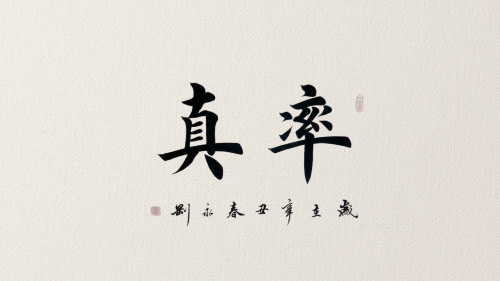 率真
歲在辛丑春永剛